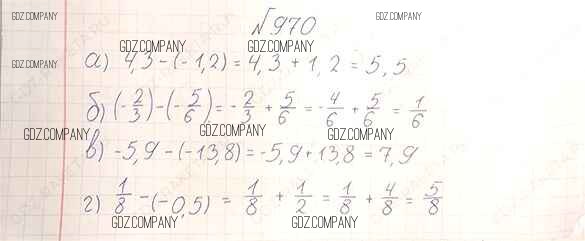 №970
GDZ.COMPANY GDZ.COMPANY
GDZ.COMPANY GDZ.COMPANY
GDZ.COMPANY
а) 4,3 - (-1,2) = 4,3 + 1,2 = 5,5
б) (-2/3) - (-5/6) = -2/3 + 5/6 = -4/6 + 5/6 = 1/6
GDZ.COMPANY GDZ.COMPANY GDZ.COMPANY
в) -5,9 - (-13,8) = -5,9 + 13,8 = 7,9
г) 1/8 - (-0,5) = 1/8 + 1/2 = 1/8 + 4/8 = 5/8
GDZ.COMPANY GDZ.COMPANY